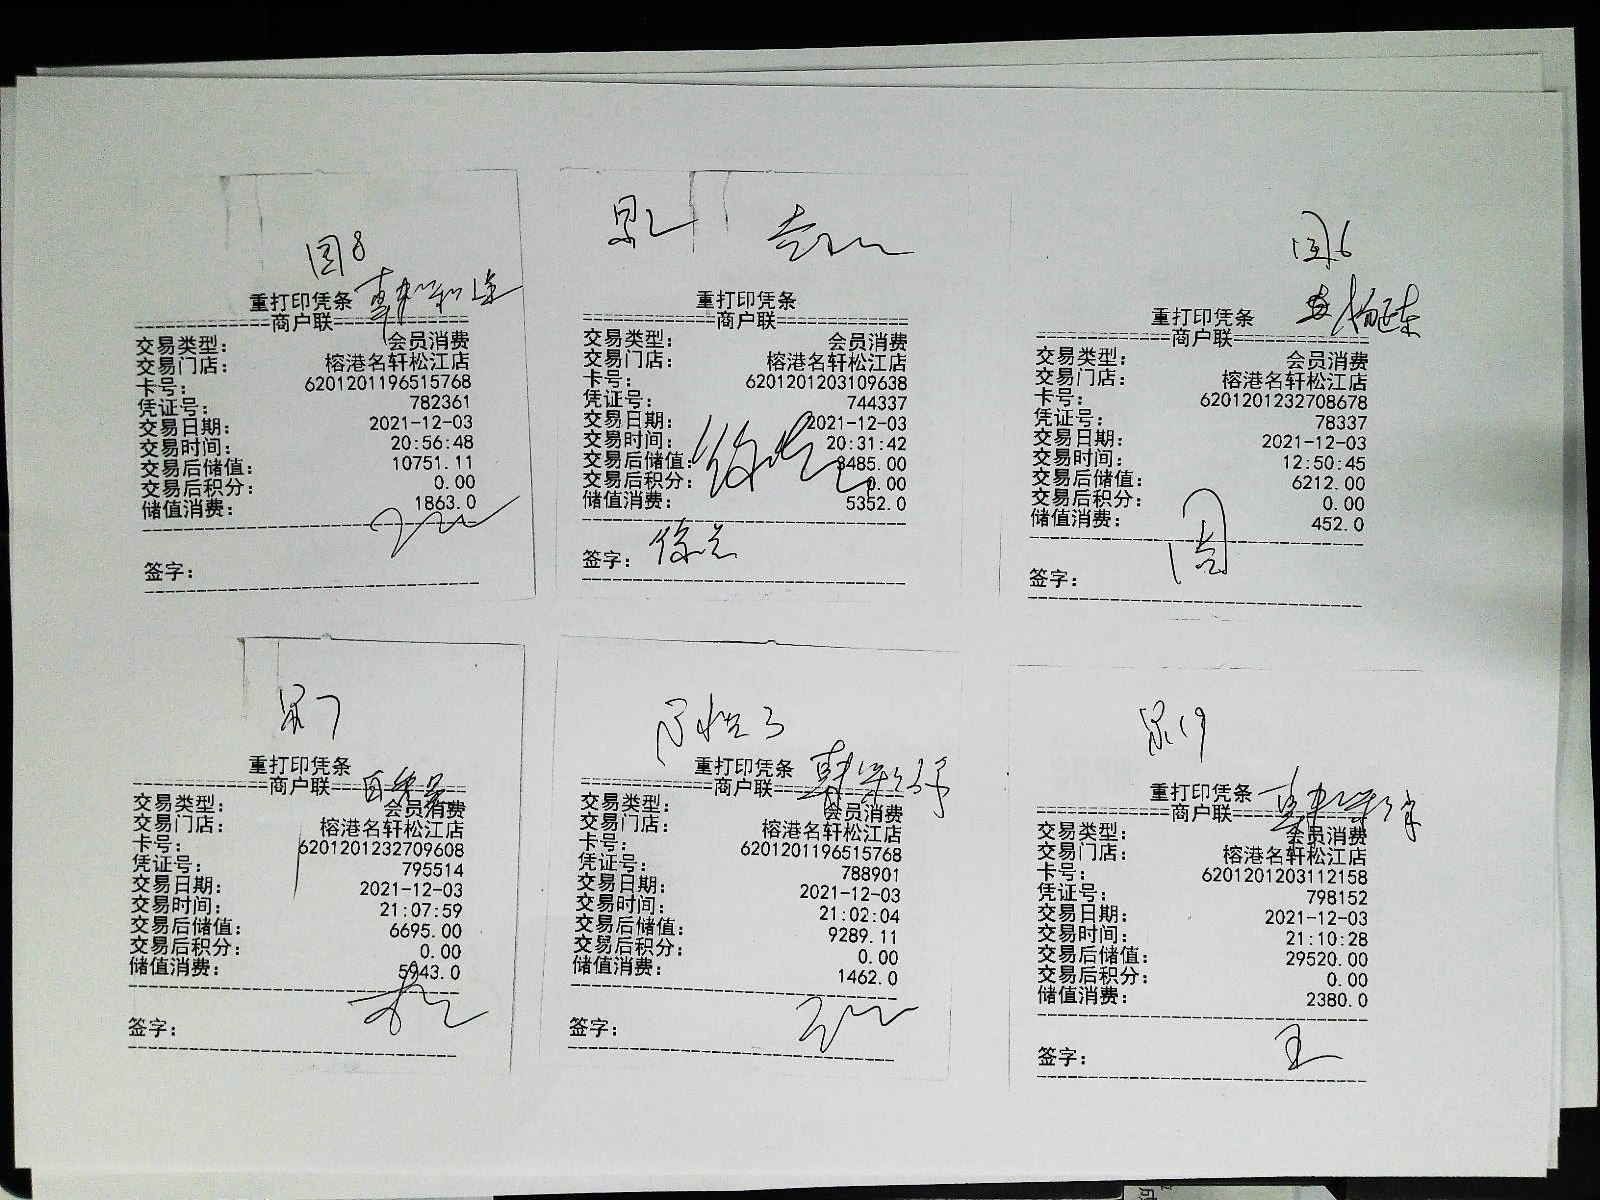 国8
重打印凭条
================商户联================
交易类型: 会员消费
交易门店: 榕港名轩松江店
卡号: 6201201196515768
凭证号: 782361
交易日期: 2021-12-03
交易时间: 20:56:48
交易后储值: 10751.11
交易后积分: 0.00
储值消费: 1863.0
签字:
重打印凭条
================商户联================
交易类型: 会员消费
交易门店: 榕港名轩松江店
卡号: 6201201203109638
凭证号: 744337
交易日期: 2021-12-03
交易时间: 20:31:42
交易后储值: 3485.00
交易后积分: 0.00
储值消费: 5352.0
签字:
国6
重打印凭条
================商户联================
交易类型: 会员消费
交易门店: 榕港名轩松江店
卡号: 6201201232708678
凭证号: 78337
交易日期: 2021-12-03
交易时间: 12:50:45
交易后储值: 6212.00
交易后积分: 0.00
储值消费: 452.0
签字:
重打印凭条
================商户联================
交易类型: 会员消费
交易门店: 榕港名轩松江店
卡号: 6201201232709608
凭证号: 795514
交易日期: 2021-12-03
交易时间: 21:07:59
交易后储值: 6695.00
交易后积分: 0.00
储值消费: 5943.0
签字:
重打印凭条
================商户联================
交易类型: 会员消费
交易门店: 榕港名轩松江店
卡号: 6201201196515768
凭证号: 788901
交易日期: 2021-12-03
交易时间: 21:02:04
交易后储值: 9289.11
交易后积分: 0.00
储值消费: 1462.0
签字:
重打印凭条
================商户联================
交易类型: 会员消费
交易门店: 榕港名轩松江店
卡号: 6201201203112158
凭证号: 798152
交易日期: 2021-12-03
交易时间: 21:10:28
交易后储值: 29520.00
交易后积分: 0.00
储值消费: 2380.0
签字: